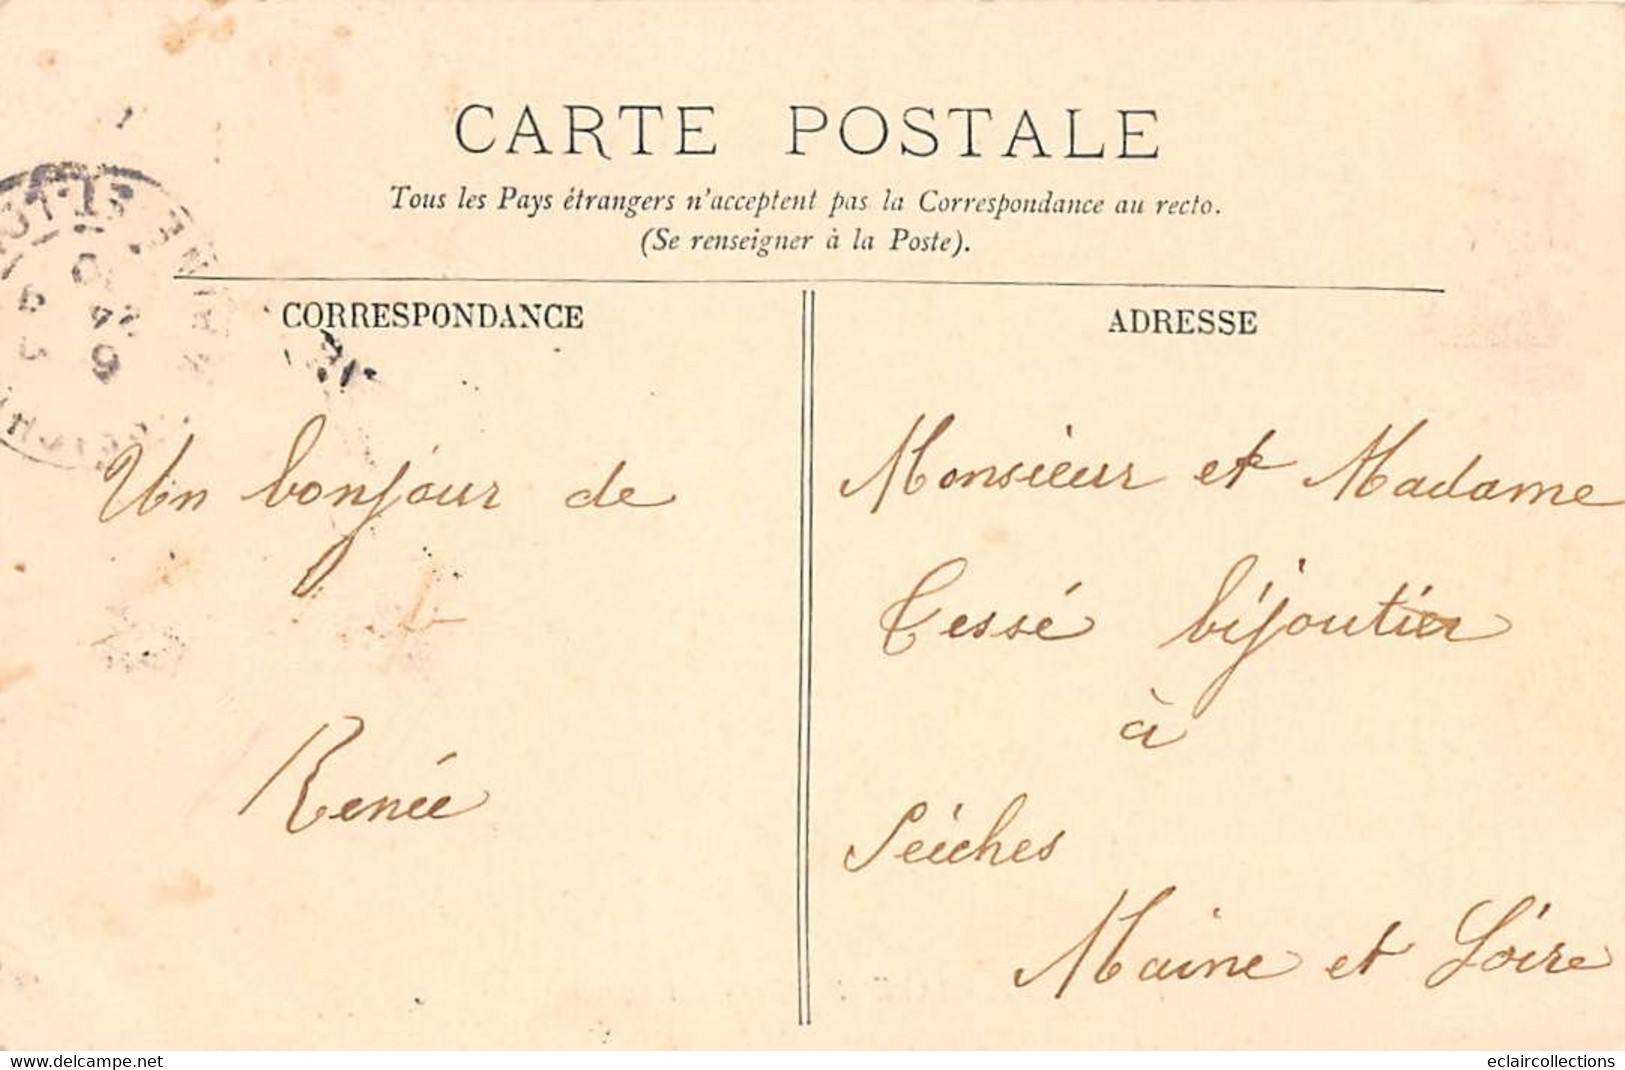 CARTE POSTALE
Tous les Pays étrangers n'acceptent pas la Correspondance au recto.
(Se renseigner à la Poste).
CORRESPONDANCE
Un bonjour de
Renée
ADRESSE
Monsieur et Madame
Tessé bijoutier
à
Seiches
Maine et Loire
www.delcampe.net
eclaircollections